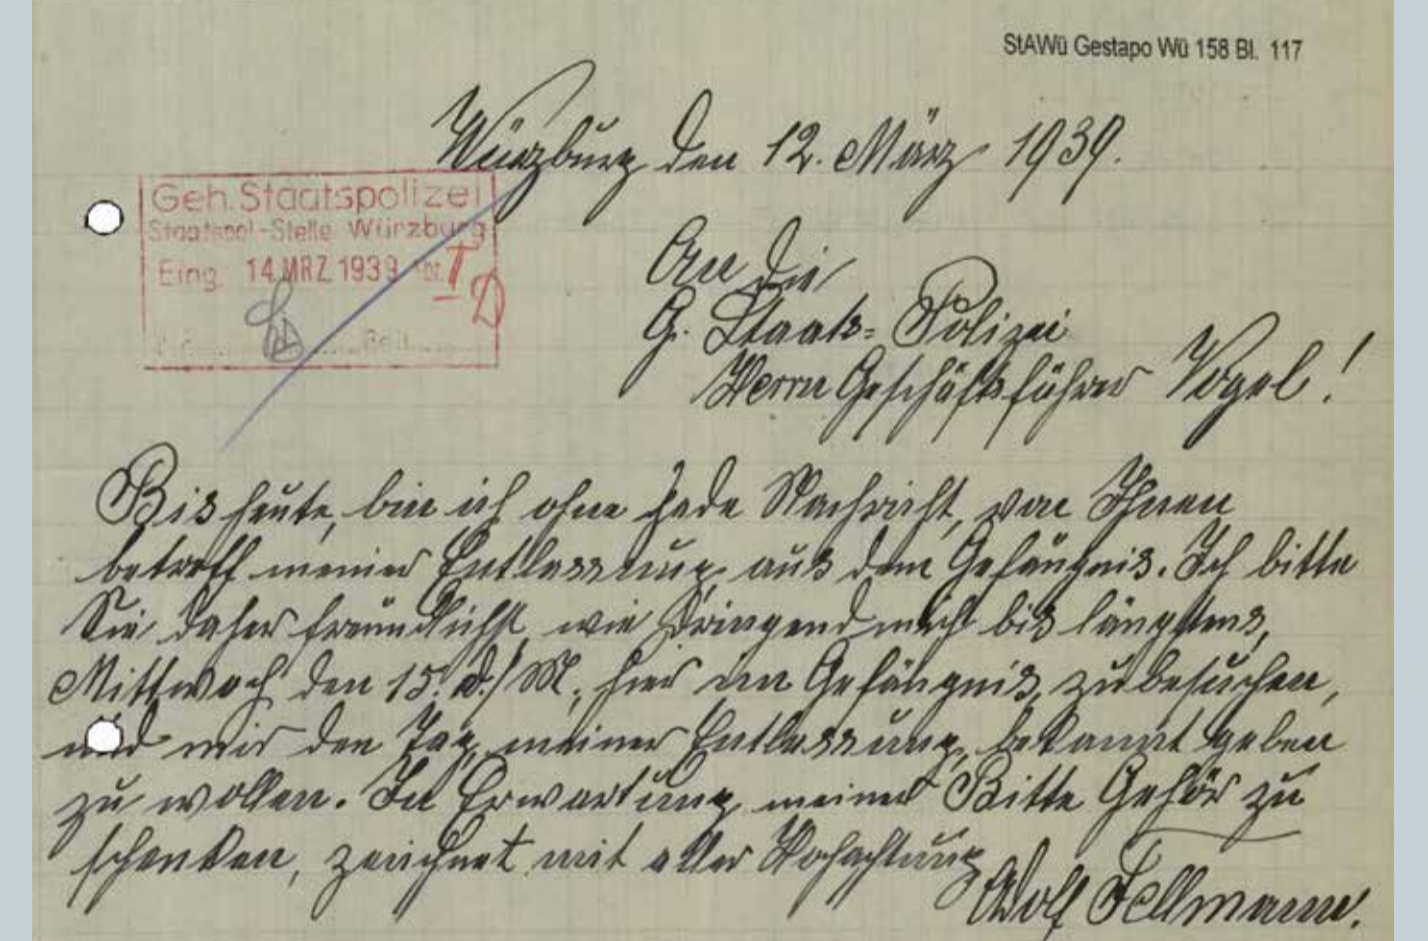 StAWü Gestapo Wü 158 Bl. 117
Würzburg den 12. März 1939.
Geh. Staatspolizei
Staatspol-Stelle Würzburg
Eing. 14. MRZ. 1939
An die
G. Staats-Polizei
Herrn Geschäftsführer Vogel!
Bis heute, bin ich ohne jede Nachricht, von Ihnen
betreff meiner Entlassung, aus dem Gefängnis. Ich bitte
Sie daher freundlichst, wie dringend mich bis längstens,
Mittwoch den 15. d./M., hier im Gefängnis, zu besuchen,
und mir den Tag, meiner Entlassung, bekannt geben
zu wollen. In Erwartung, meiner Bitte Gehör zu
schenken, zeichnet mit aller Hochachtung
Adolf Fellmann.